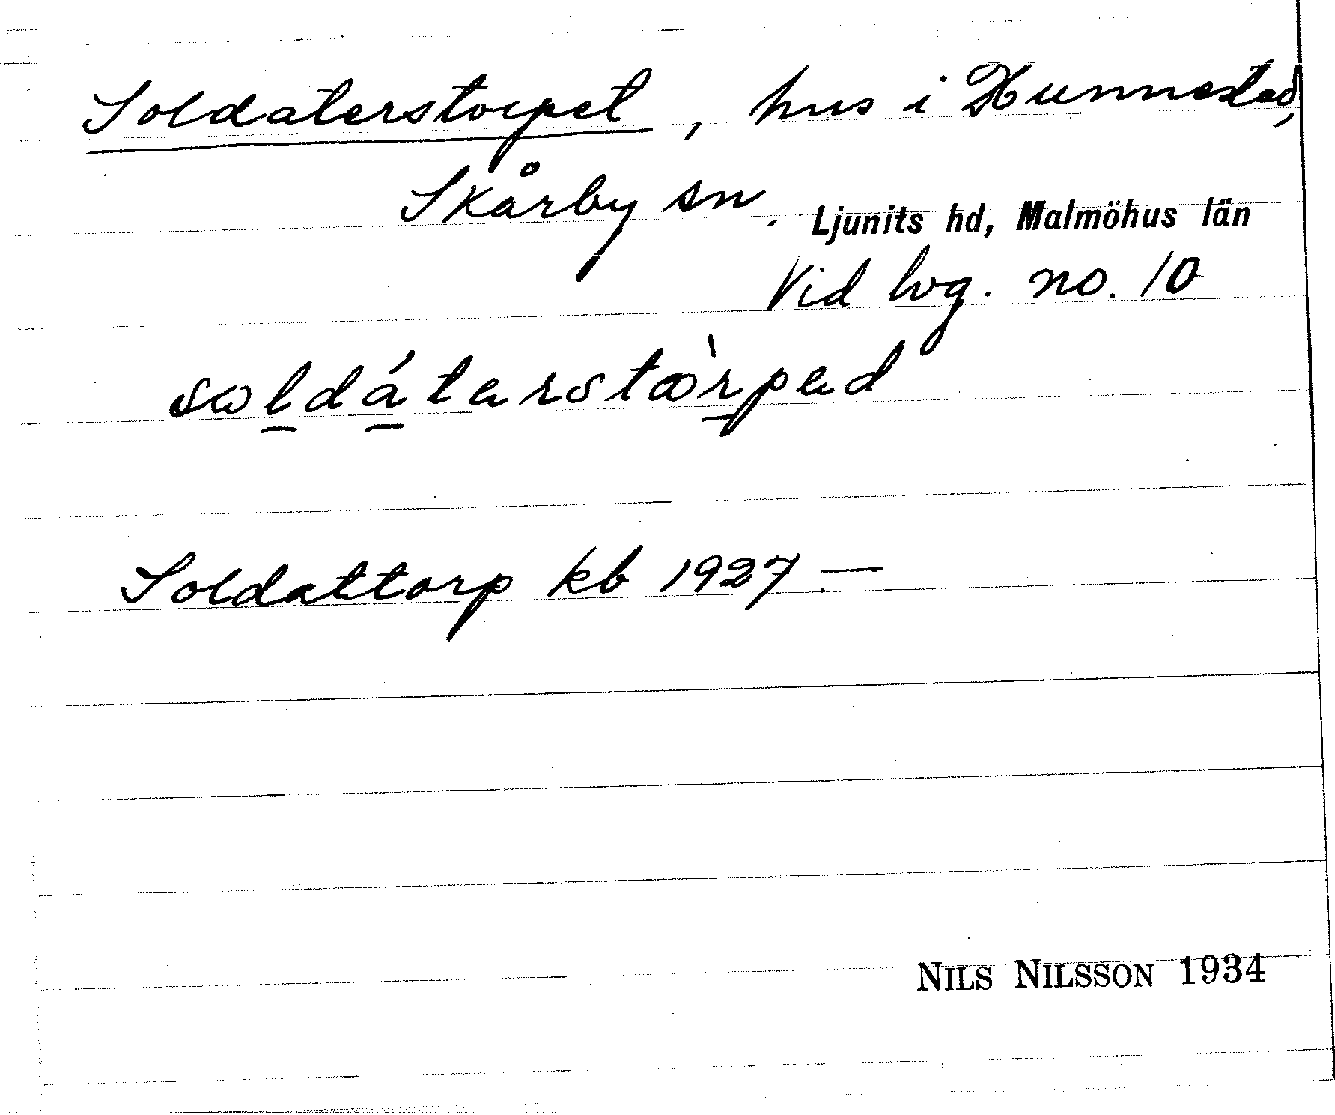 Soldaterstorpet, hus i Hunnestad,
Skårby sn. Ljunits hd, Malmöhus län
Vid lvg. no. 10
soldátarstòrpad
Soldattorp kb 1927.—
NILS NILSSON 1934